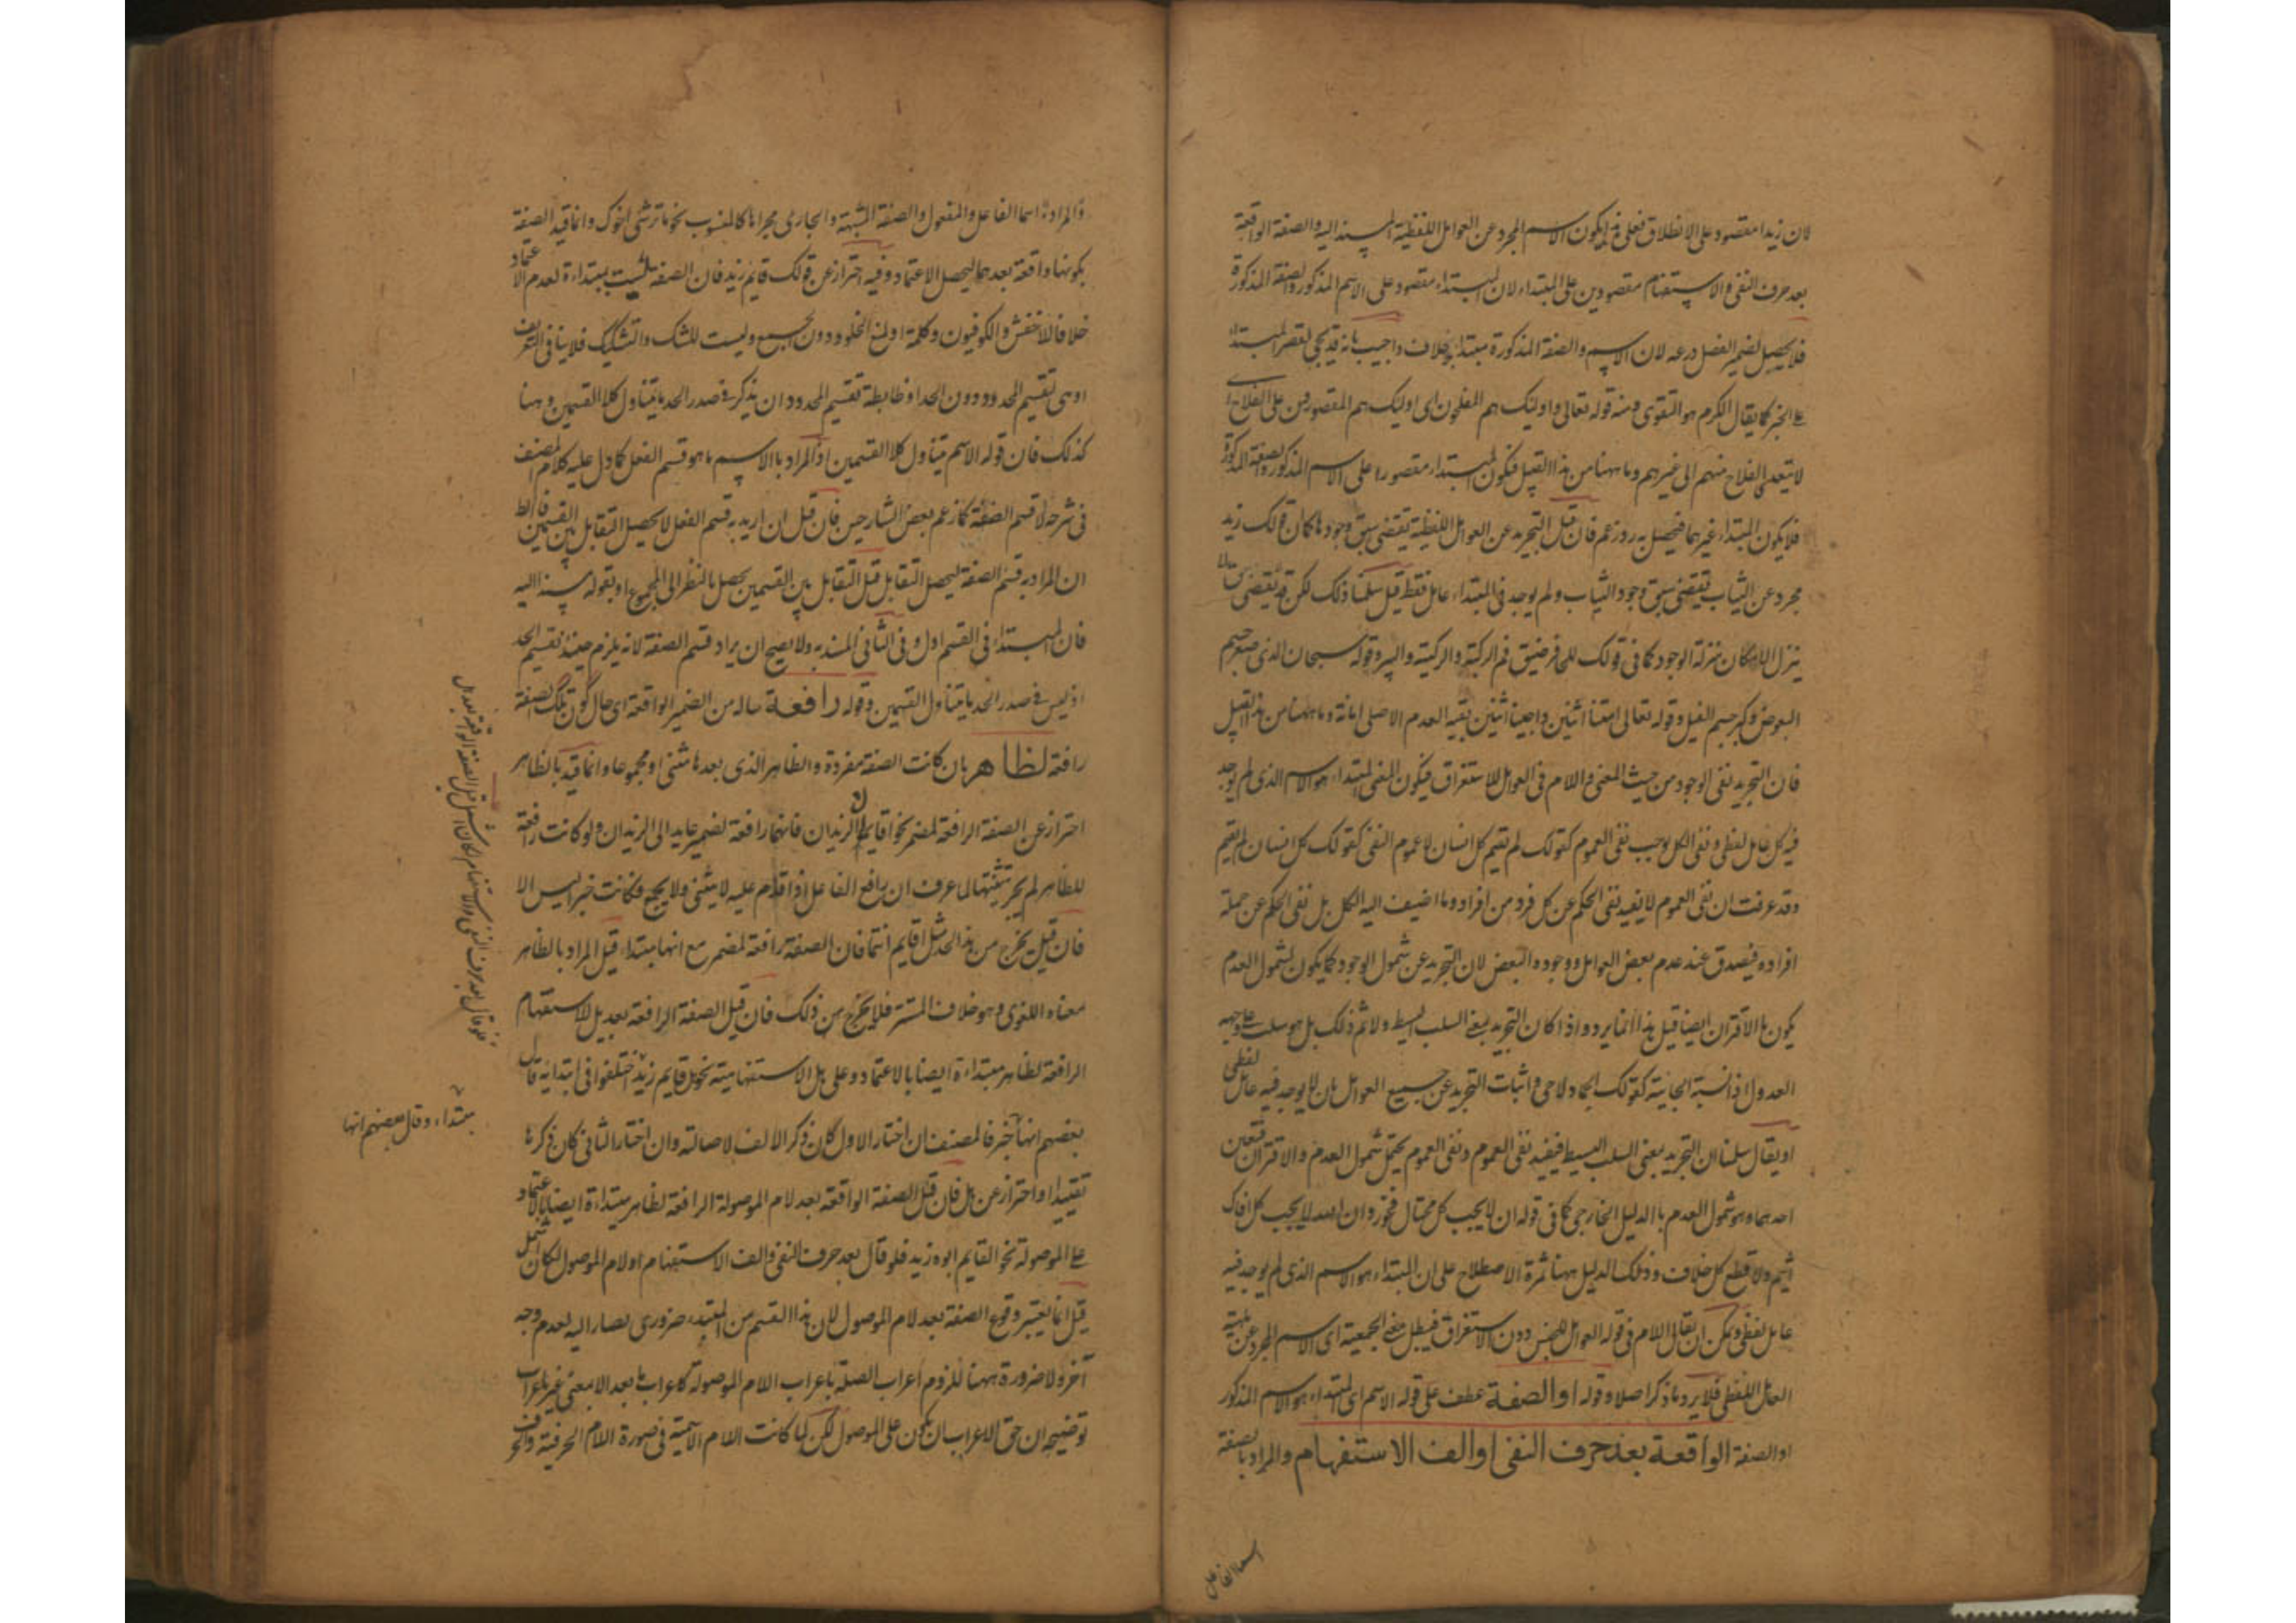 لان زيدا مقصود على الانطلاق فعلى هذا يكون الاسم المجرد عن العوامل اللفظية المسند اليه والصفة الواقعة
بعد حرف النفى والاستفهام مقصودين على المبتداء لان المبتداء مقصود على الاسم المذكور والصفة المذكورة
فلا يحصل لضمير الفصل درعه لان الاسم والصفة المذكورة مبتداء بخلاف واجيب بانه قد يجى لقصر المبتداء
على الخبر كما يقال الكرم هو التقوى ومنه قوله تعالى واولئك هم المفلحون اى اولئك هم المقصورون على الفلاح
لا يتعدى الفلاح منهم الى غيرهم وما ههنا من هذا القبيل فيكون المبتداء مقصورا على الاسم المذكور والصفة المذكورة
فلا يكون المبتداء غيرهما فيحصل به رد زعم فان قيل التجريد عن العوامل اللفظية يقتضى سبق وجودها كما ان قولك زيد
مجرد عن الثياب يقتضى سبق وجود الثياب ولم يوجد فى المبتداء عامل فقط قيل سلمنا ذلك لكن قد
ينزل الامكان منزلة الوجود كما فى قولك للحافر ضيق فم الركية والركية والبير وقوله سبحان الذى صغر جسم
البعوض وكبر جسم الفيل وقوله تعالى امتنا اثنين واحييتنا اثنين بقيه العدم الاصلى اماتة وما ههنا من هذا القبيل
فان التجريد نفى الوجود من حيث المعنى واللام فى العوامل للاستغراق فيكون المعنى المبتداء هو الاسم الذى لم يوجد
فيه كل عامل لفظى ونفى الكل يوجب نفى العموم كقولك لم يقم كل انسان لا عموم النفى كقولك كل انسان لم يقم
وقد عرفت ان نفى العموم لا يفيد نفى الحكم عن كل فرد من افراد وما اضيف اليه الكل بل نفى الحكم عن جملة
افراده فيصدق عند عدم بعض العوامل ووجود البعض لان التجريد عن شمول الوجود كما يكون لشمول العدم
يكون بالاقتران ايضا قيل هذا انما يرد اذا كان التجريد بمعنى السلب البسيط ولا ثم ذلك بل هو سلب على وجه
العدول اذ نسبة ايجابية كقولك الجماد لا حى واثبات التجريد عن جميع العوامل بان لا يوجد فيه عامل لفظى
او يقال سلمنا ان التجريد بمعنى السلب البسيط فيفيد نفى العموم ونفى العموم يحتمل شمول العدم والاقتران فتعين
احدهما وهو شمول العدم بالدليل الخارجى كما فى قوله ان لا يحب كل مختال فخور وان الله لا يحب كل افاك
اثيم ولا قطع كل خلاف وذلك الدليل ههنا ثمرة الاصطلاح على ان المبتداء هو الاسم الذى لم يوجد فيه
عامل لفظى ويمكن ان يقال اللام فى قوله العوامل للجنس دون الاستغراق فيبطل معنى الجمعية اى الاسم المجرد عن ماهية
العامل اللفظى فلا يرد ما ذكر اصلا وقوله او الصفة عطف على قوله الاسم اى المبتداء هو الاسم المذكور
او الصفة الواقعة بعد حرف النفى او الف الاستفهام والمراد بالصفة
اسما الفاعل
والمراد اسما الفاعل والمفعول والصفة المشبهة والجارى مجراها كالمنسوب نحو ما قرشى اخوك وانما قيد الصفة
بكونها واقعة بعدهما ليحصل الاعتماد وفيه احتراز عن قولك قايم زيد فان الصفة ليست بمبتداءة لعدم الاعتماد
خلافا للاخفش والكوفيون وكلمة او لمنع الخلو دون الجمع وليست للشك والتشكيك فلا ينافى التعريف
او هى لتقسيم المحدود دون الحد اذ ضابطة تقسيم المحدود ان يذكر فى صدر الحد ما يتناول كلا القسمين وههنا
كذلك فان قوله الاسم يتناول كلا القسمين اذ المراد بالاسم ما هو قسم الفعل كما دل عليه كلام المصنف
فى شرحه لا قسم الصفة كما زعم بعض الشارحين فان قيل ان اريد به قسم الفعل لا يحصل التقابل بين القسمين
ان المراد به قسم الصفة ليحصل التقابل قيل التقابل بين القسمين يحصل بالنظر الى المجموع او بقوله مسند اليه
فان المبتداء فى القسم الاول وفى الثانى المسند به ولا يصح ان يراد قسم الصفة لانه يلزم حينئذ تقسيم الحد
اذ ليس فى صدر الحد ما يتناول القسمين وقوله رافعة حاله من الضمير الواقعة اى حال كون تلك الصفة
رافعة لظاهر بان كانت الصفة مفردة والظاهر الذى بعدها مثنى او مجموعا وانما قيد بالظاهر
احتراز عن الصفة الرافعة لمضمر نحو اقايمان الزيدان فانهما رافعة لضمير عايد الى الزيدان ولو كانت رافعة
للظاهر لم يجز تثنيتها لما عرف ان رافع الفاعل اذا قدم عليه لا يثنى ولا يجمع فكانت خبرا ليس الا
فان قيل يخرج من هذا الحد مثل اقايم انتما فان الصفة رافعة لمضمر مع انها مبتداء قيل المراد بالظاهر
معناه اللغوى وهو خلاف المستتر فلا يخرج من ذلك فان قيل الصفة الرافعة بعد هل الاستفهام
الرافعة لظاهر مبتداءة ايضا بالاعتماد وعلى هل الاستفهامية نحو هل قايم زيد اختلفوا فى ابتدائيته قال
بعضهم انها خبر فالمصنف ان اختار الاول كان ذكر الالف لاصالته وان اختار الثانى كان ذكرها
تقييدا واحترازا عن هل فان قيل الصفة الواقعة بعد لام الموصولة الرافعة لظاهر مبتداءة ايضا بالاعتماد
على الموصولة نحو القايم ابوه زيد فلو قال بعد حرف النفى والف الاستفهام او لام الموصول لكان اشمل
قيل انما يعتبر وقوع الصفة بعد لام الموصول لان هذا القسم من المبتداء ضرورى يصار اليه لعدم وجه
آخر ولا ضرورة ههنا للزوم اعراب الصلة باعراب اللام الموصولة كاعراب ما بعد الا بمعنى غير باعراب
توضيحه ان حق الاعراب ان يكون على الموصول لكن لما كانت اللام الاسمية فى صورة اللام الحرفية والحرف
فلو قال بعد حرف النفى والاستفهام لكان اشمل قيل الصفة الواقعة بعد هل
مبتداء وقال بعضهم انها